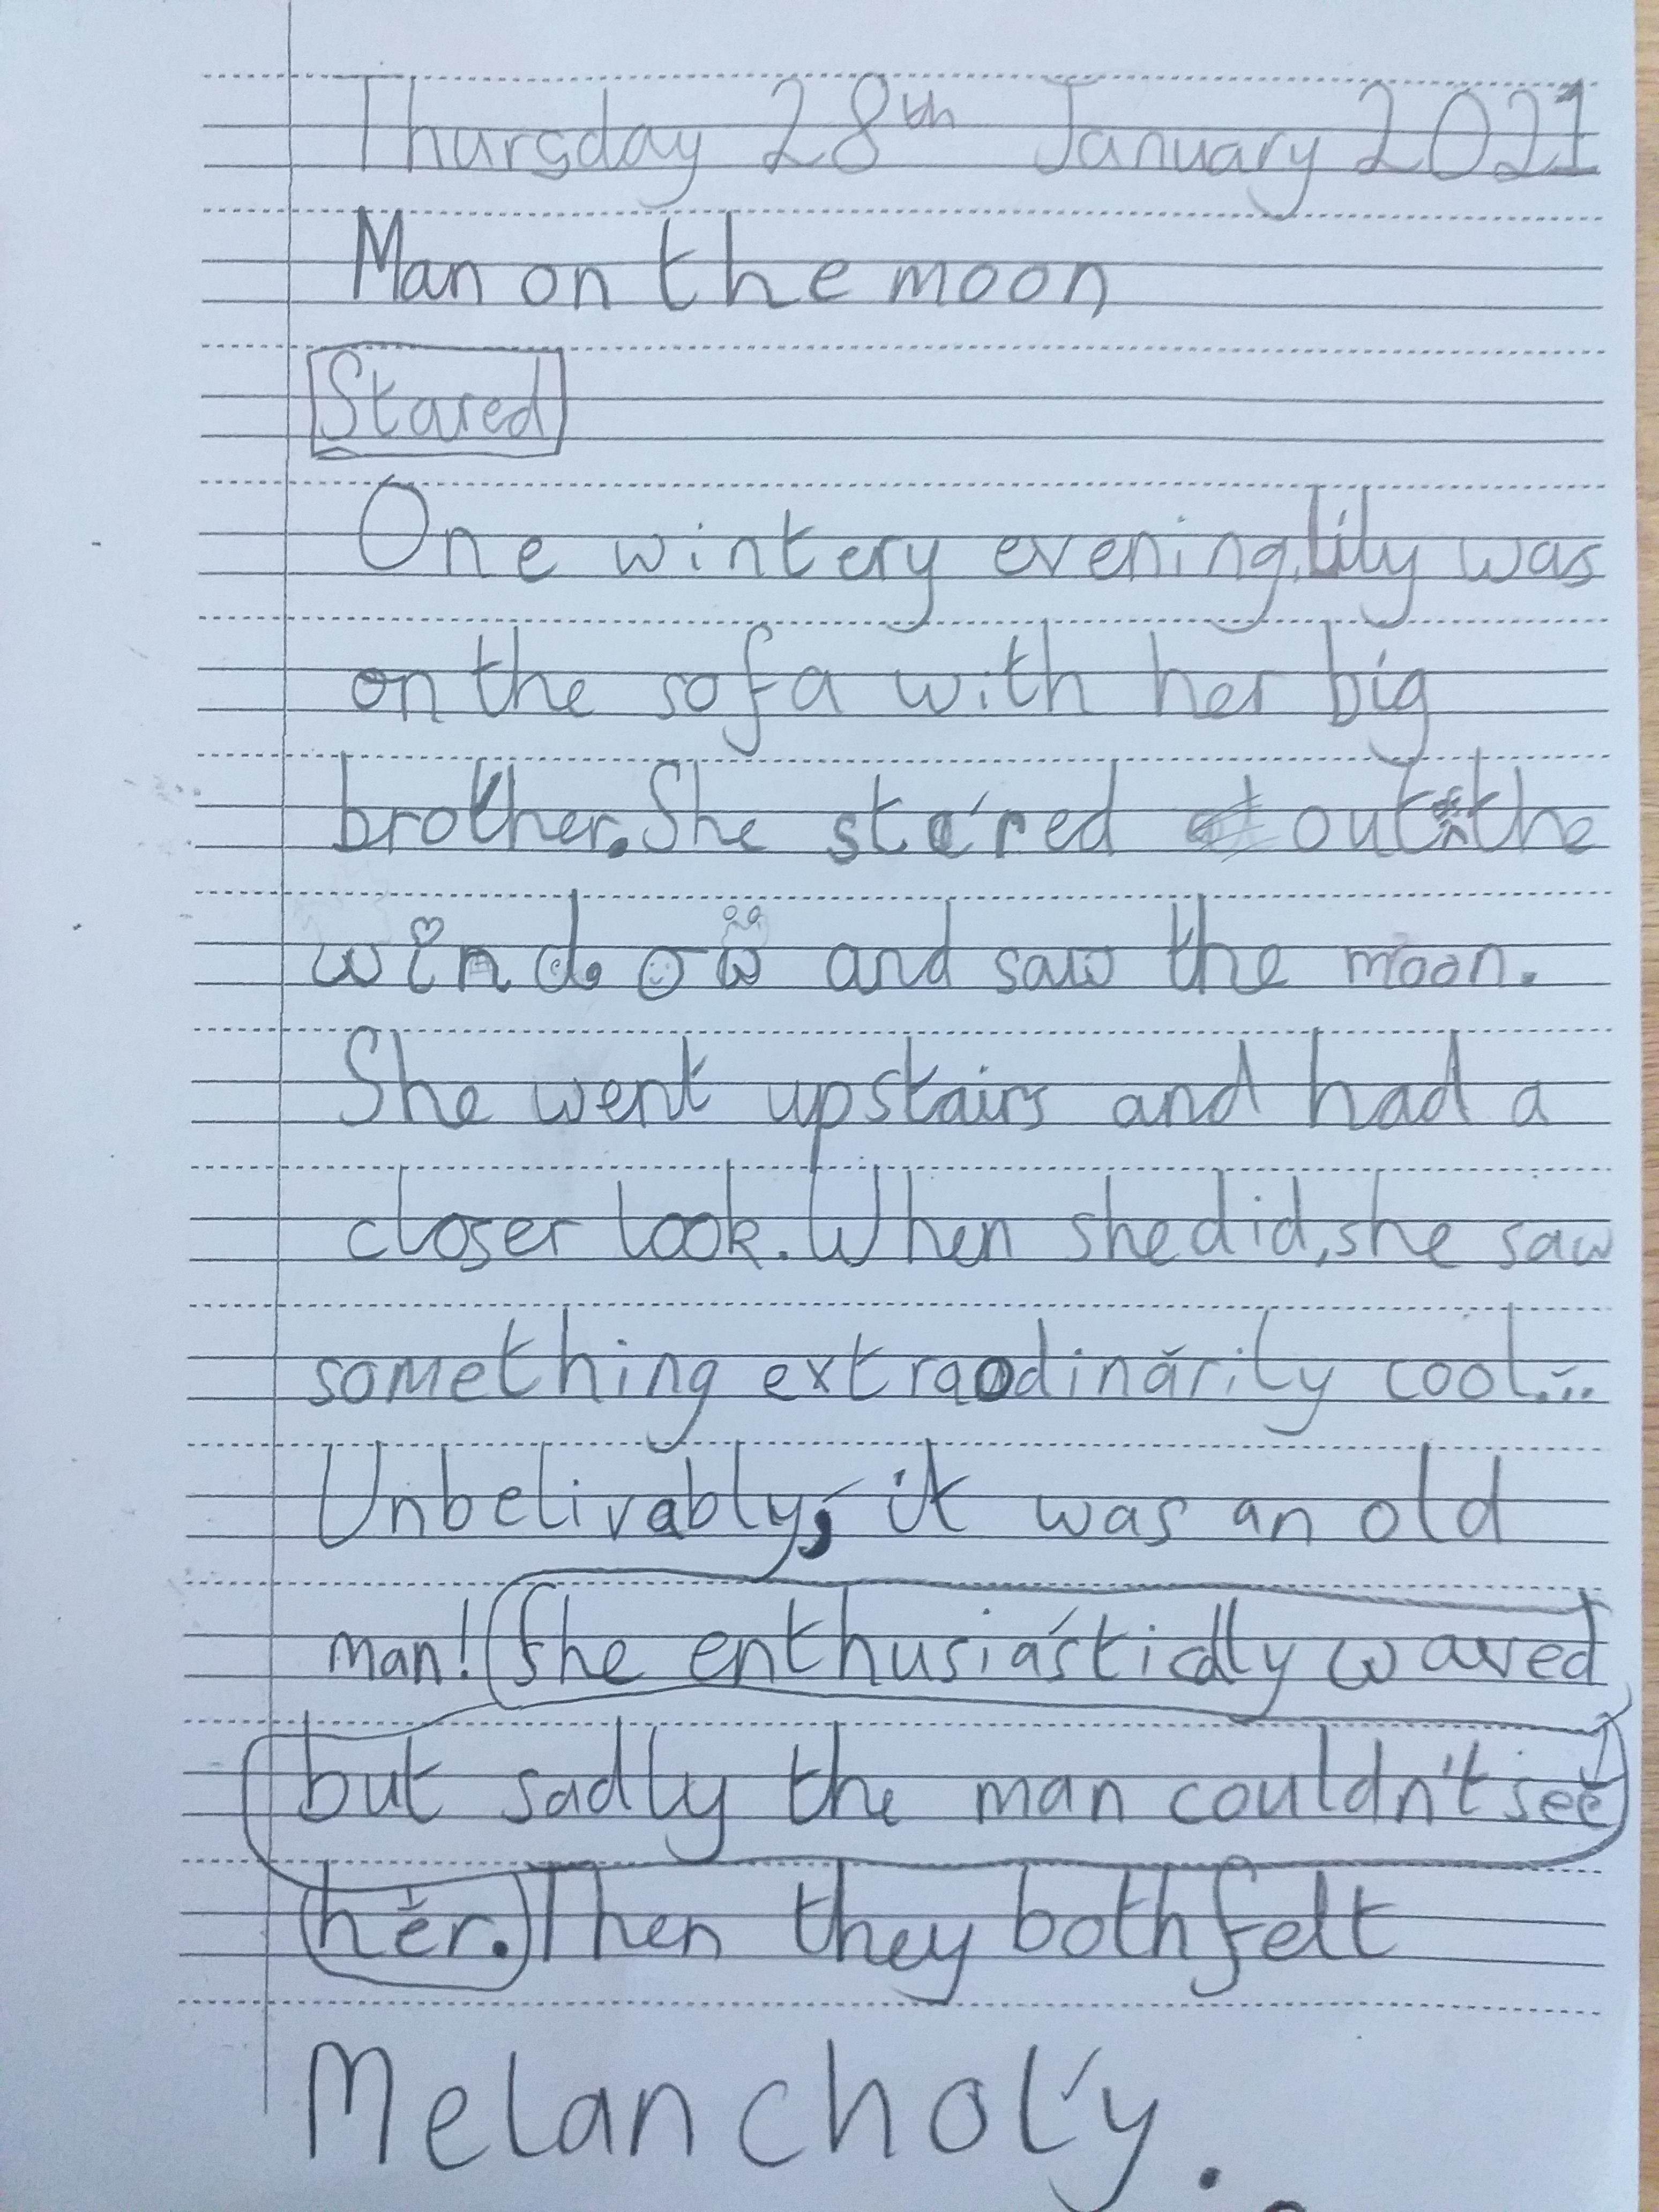 Thursday 28th January 2021
Man on the moon
Stared
One wintery evening, lily was
on the sofa with her big
brother. She stared out the
window and saw the moon.
She went upstairs and had a
closer look. When she did, she saw
something extraodinarily cool...
Unbelivably, it was an old
man! She enthusiasticly waved
but sadly the man couldn't see
her. Then they both felt
Melancholy.